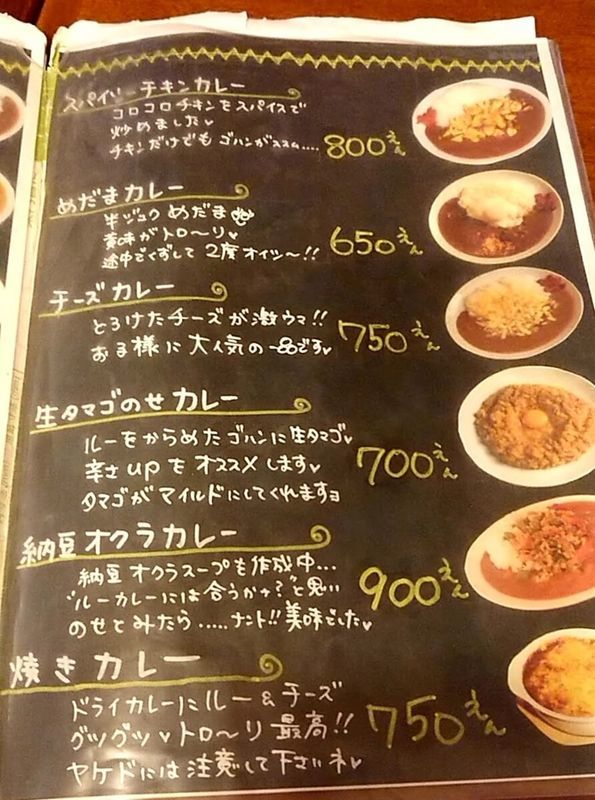 スパイシーチキンカレー
コロコロチキンをスパイスで
炒めました♥
チキンだけでもゴハンがススム....
800えん
めだまカレー
半ジュクめだま
黄味がトロ〜リ♥
途中でくずして2度オイシ〜!!
650えん
チーズカレー
とろけたチーズが激ウマ!!
お子様に大人気の一品です♥
750えん
生タマゴのせカレー
ルーをからめたゴハンに生タマゴ♥
辛さupをオススメします♥
タマゴがマイルドにしてくれますョ
700えん
納豆オクラカレー
納豆オクラスープも作成中...
"ルーカレーには合うかナ?"と思い
のせてみたら.....ナント!!美味でした♥
900えん
焼きカレー
ドライカレーにルー&チーズ
グツグツ♥トロ〜リ最高!!
ヤケドには注意して下さいネ♥
750えん